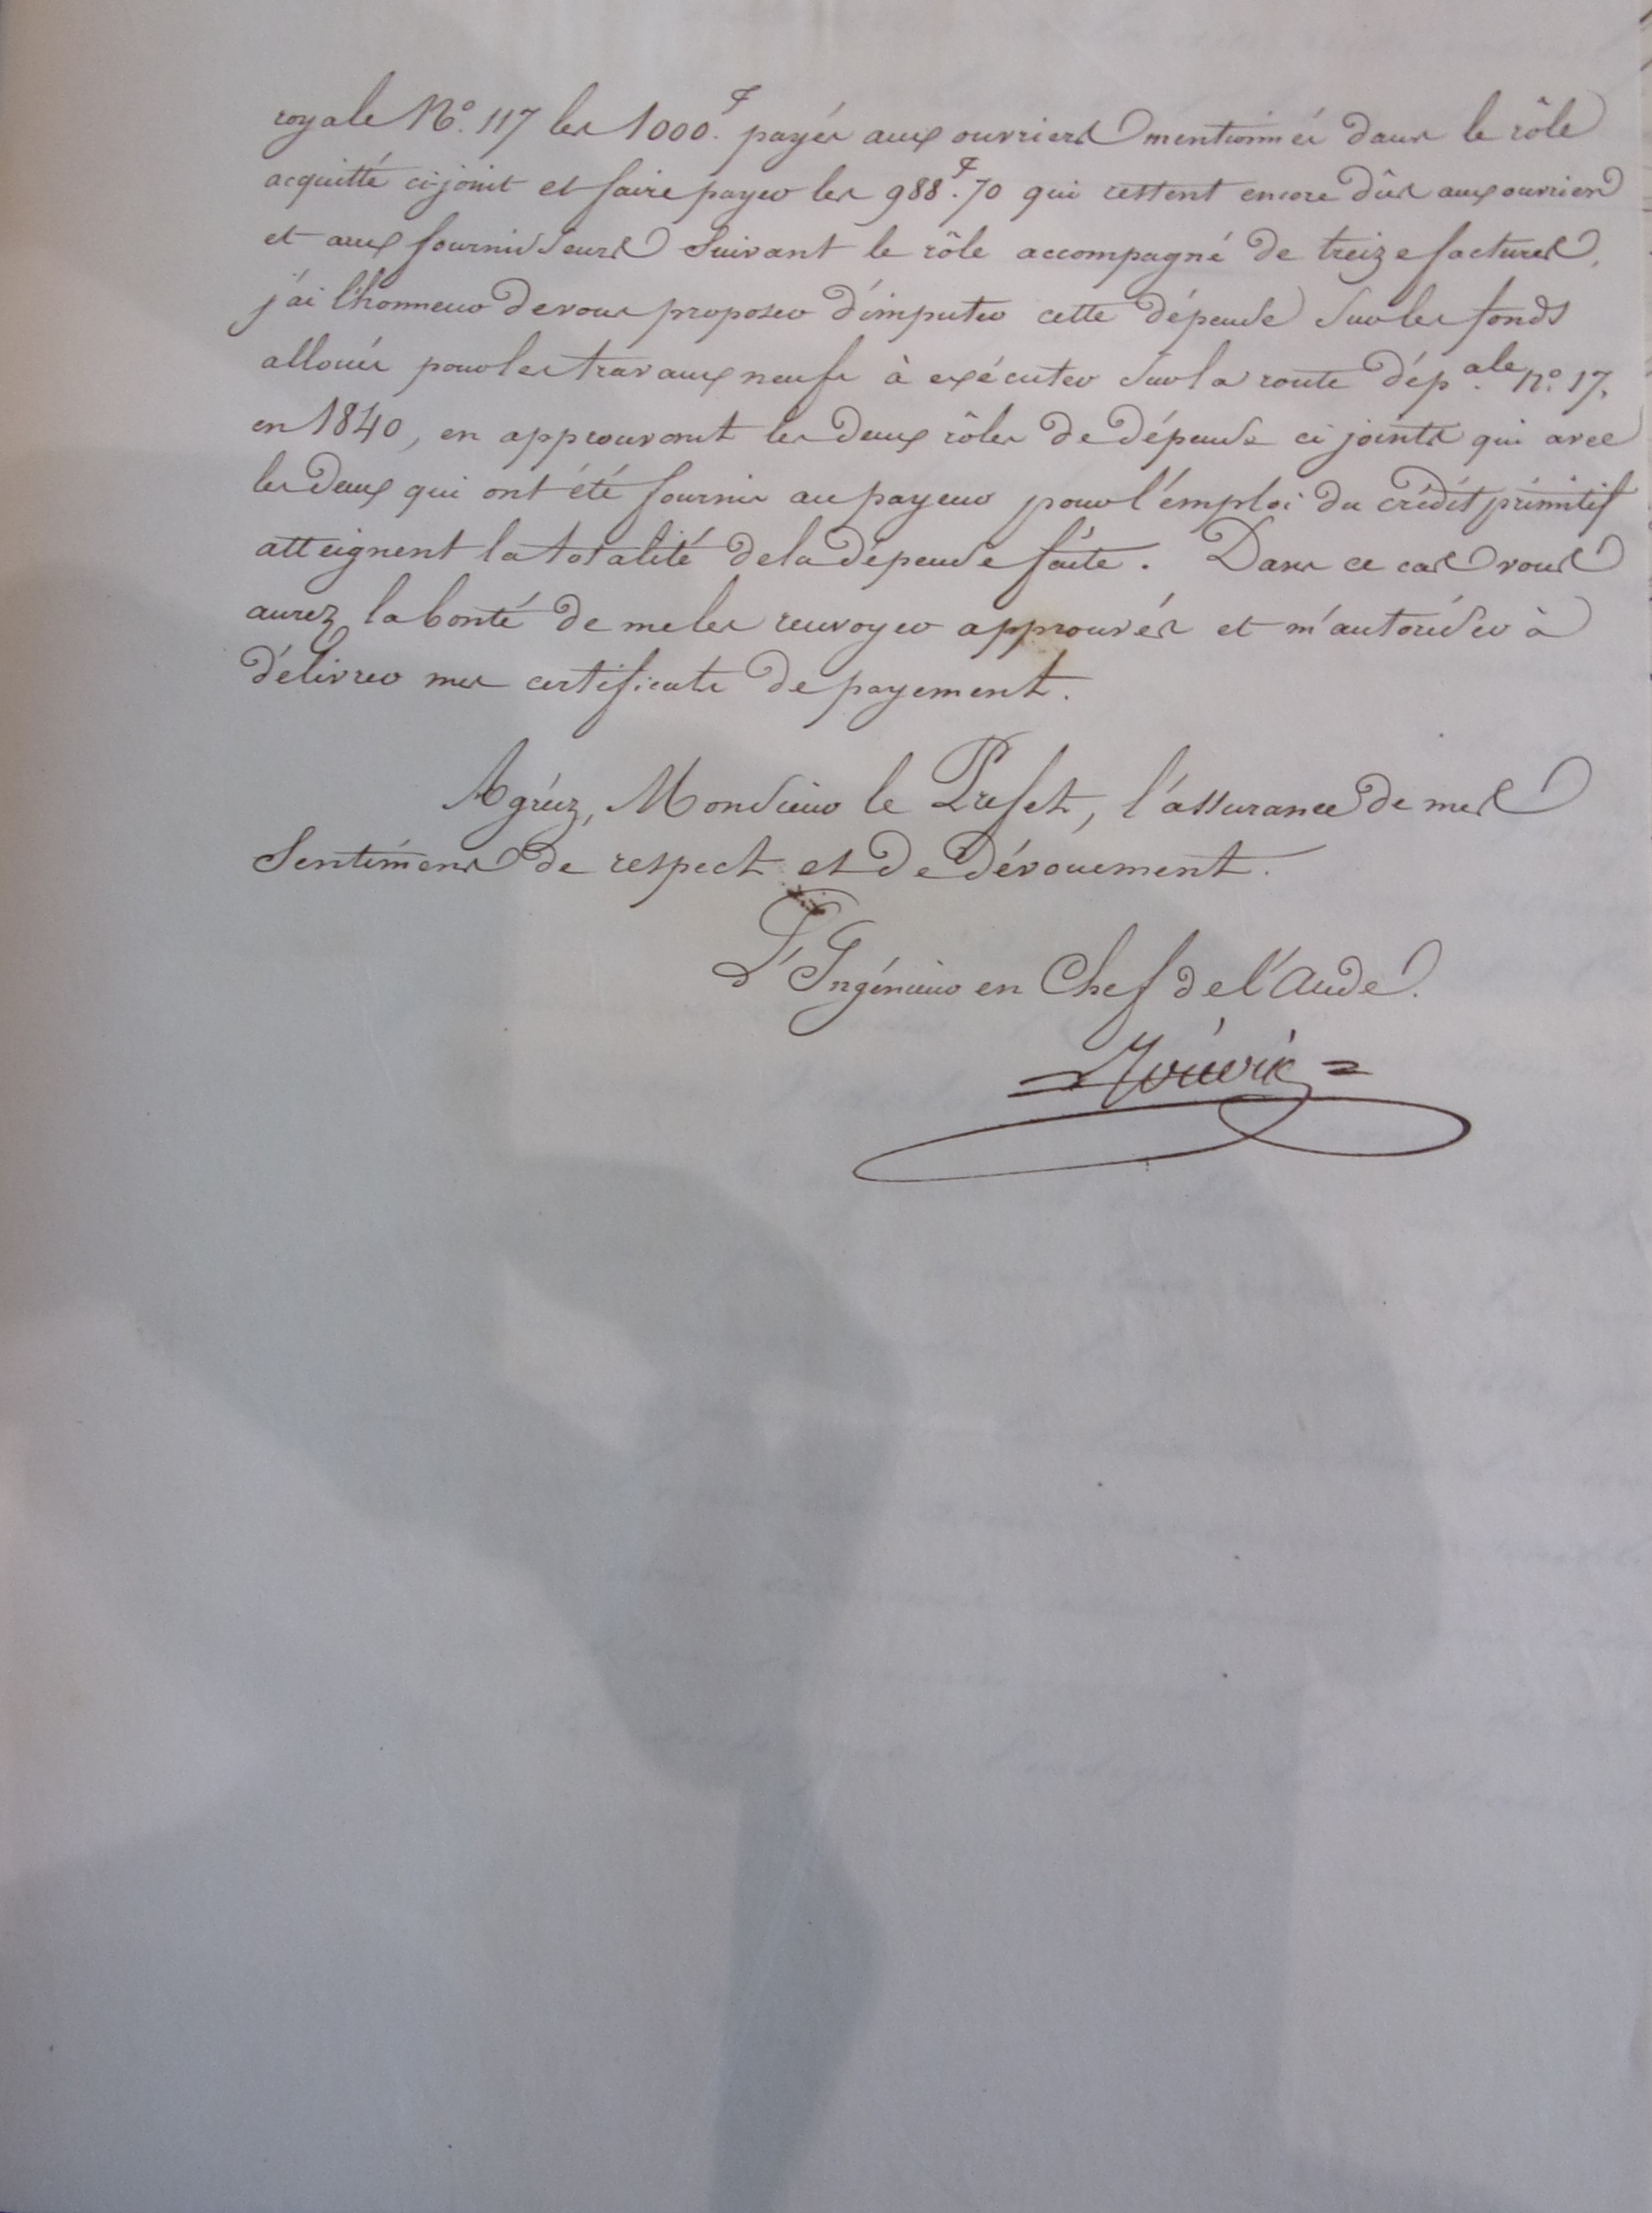 royale N.° 117 les 1000.f payés aux ouvriers mentionnés dans le rôle
acquitté ci-joint et faire payer les 988.f 70 qui restent encore dûs aux ouvriers
et aux fournisseurs suivant le rôle accompagné de treize factures,
j'ai l'honneur de vous proposer d'imputer cette dépense sur les fonds
alloués pour les travaux neufs à exécuter sur la route dép.ale n.° 17,
en 1840, en approuvant les deux rôles de dépense ci joints qui avec
les deux qui ont été fournis au payeur pour l'emploi du crédit primitif
atteignent la totalité de la dépense faite. Dans ce cas vous
aurez la bonté de me les renvoyer approuvés et m'autoriser à
délivrer mes certificats de payement.
Agréez, Monsieur le Préfet, l'assurance de mes
Sentimens de respect et de dévouement.
L'Ingénieur en Chef de l'Aude.